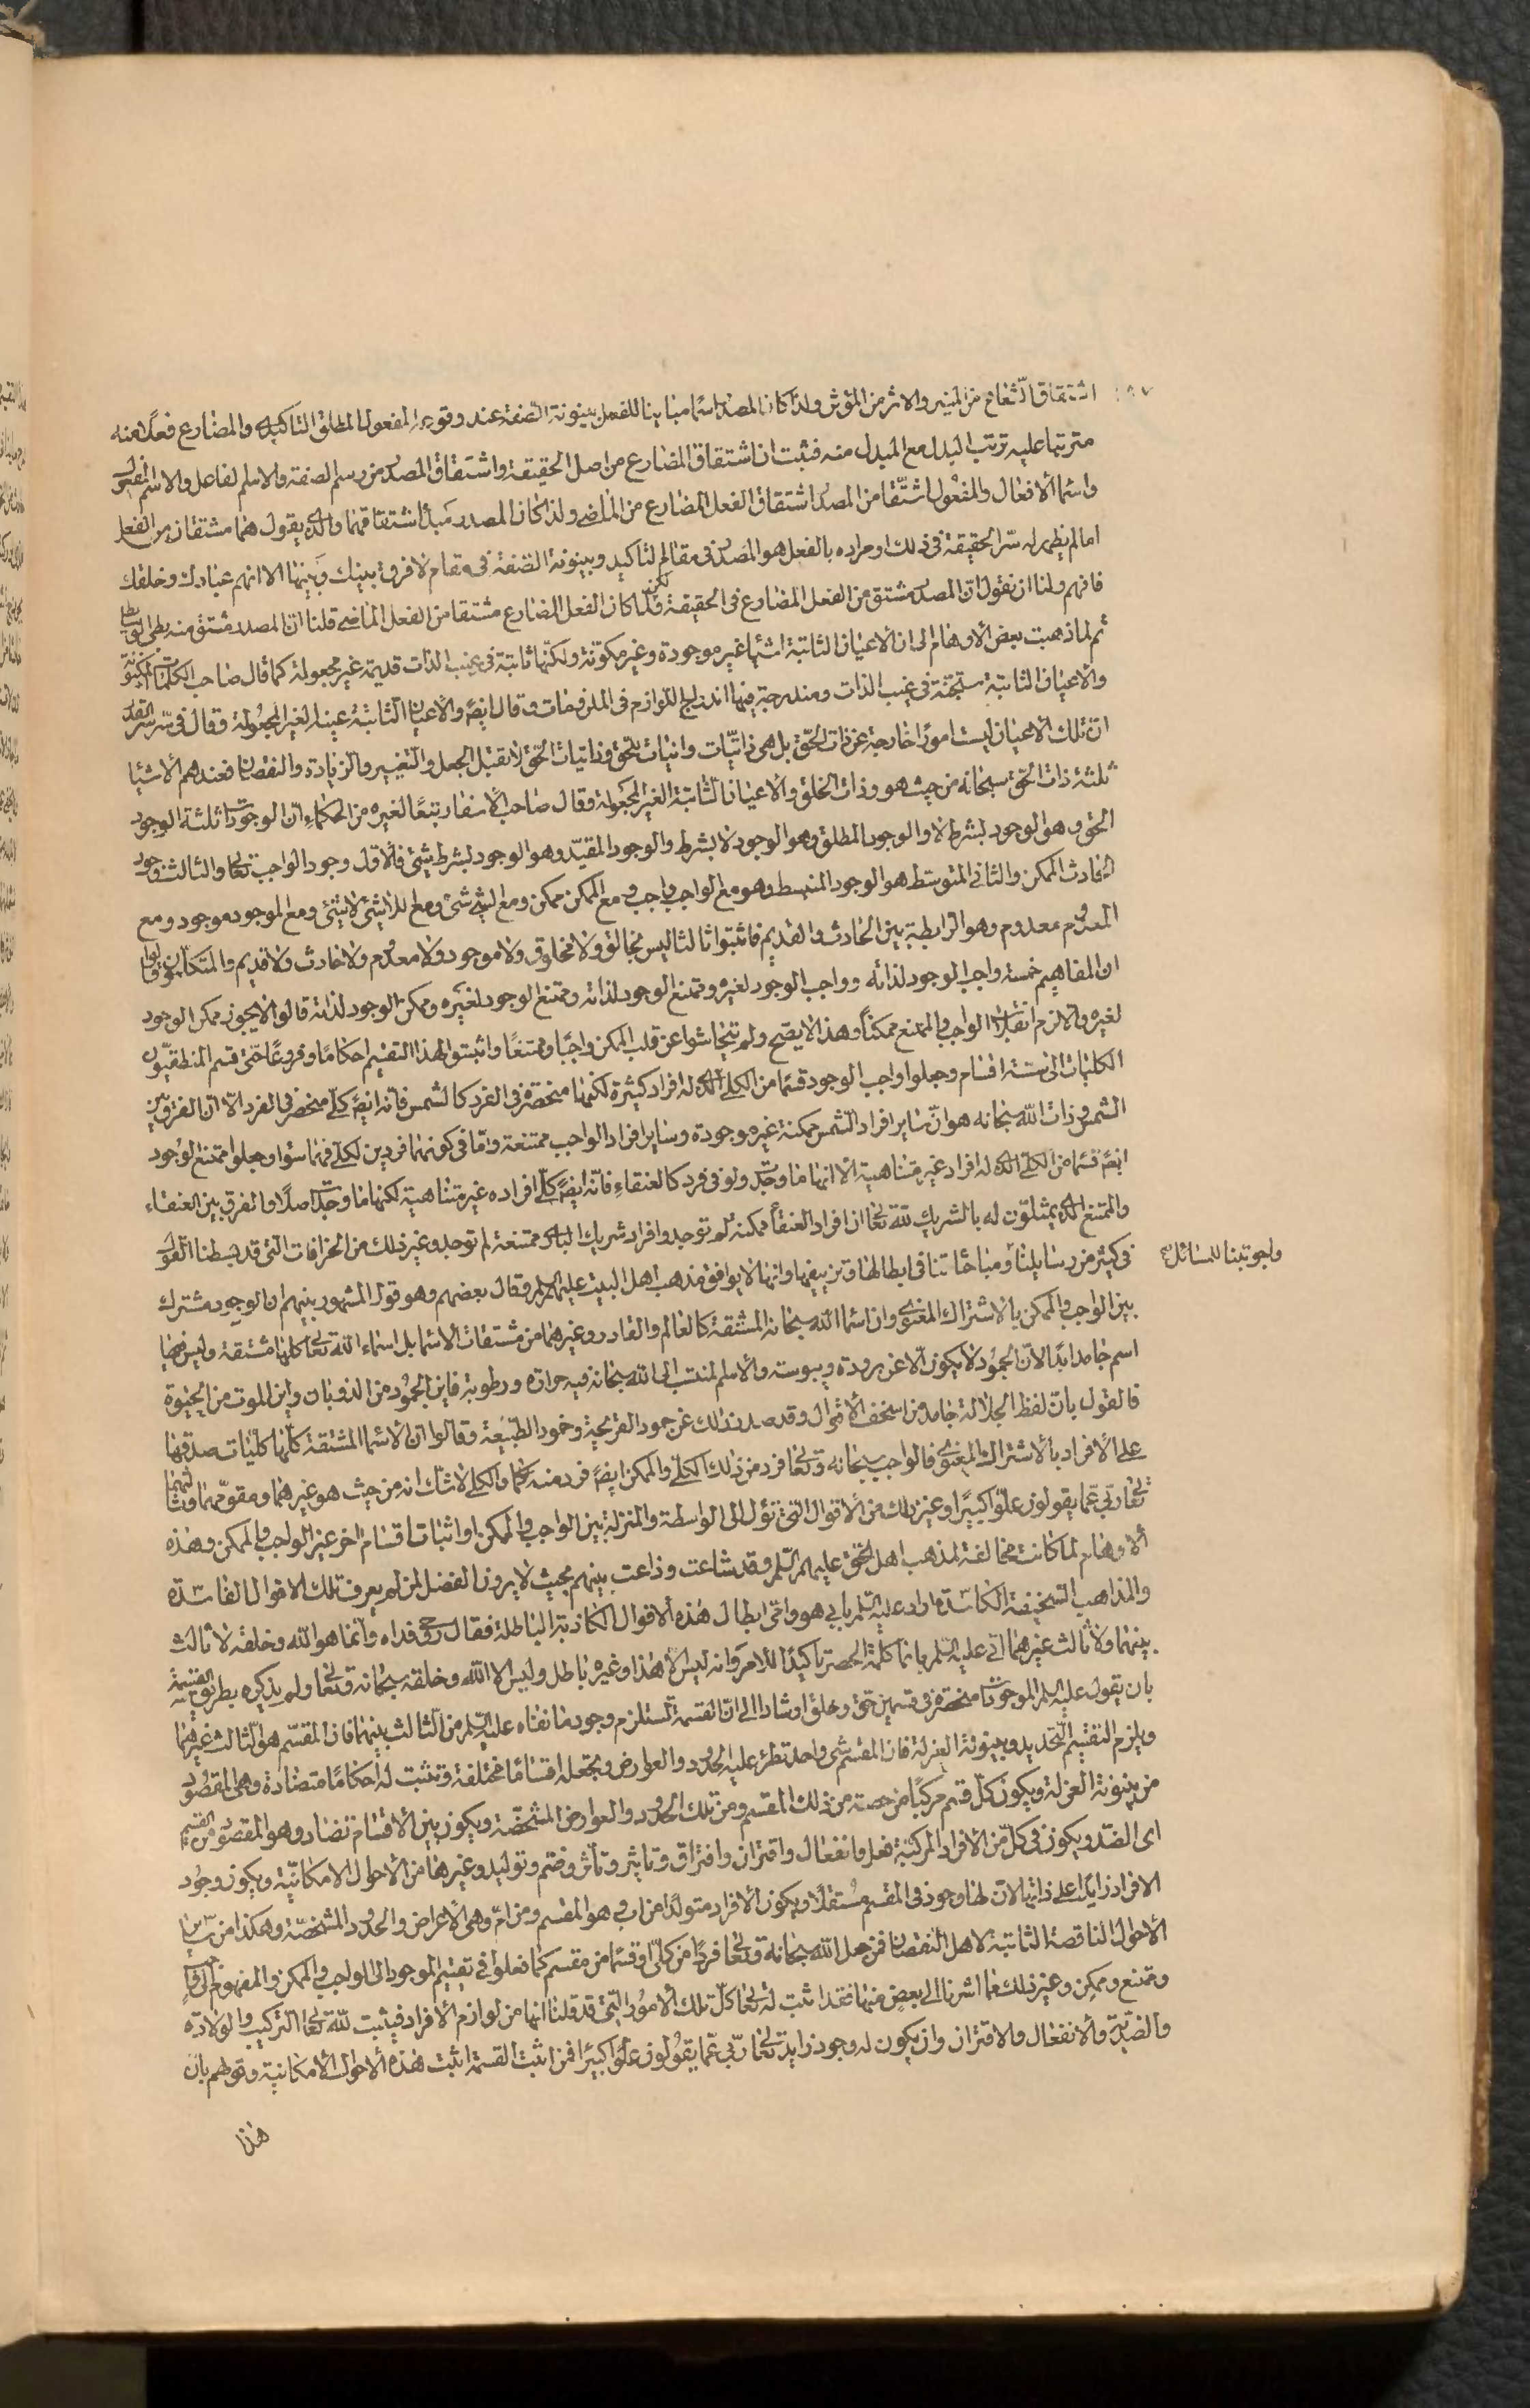 اشتقاق الشعاع من المنير والاثر من المؤثر ولذا كان المصدر اسما مباينا للفعل بينونة الصفة عند وقوعه المفعول المطلق التاكيدى والمضارع فعلا منه
مترتبا عليه ترتب البدل مع المبدل منه فثبت ان اشتقاق المضارع من اصل الحقيقة واشتقاق المصدر من رسم الصفة والاسم الفاعل والاسم المفعول
واسما الافعال والمفعول اشتقا من المصدر اشتقاق الفعل المضارع من الماضى ولذا كان المصدر مبدأ اشتقاقهما والذى يقول هما مشتقان من الفعل
اما لم يظهر له سر الحقيقة فى ذلك او مراده بالفعل هو المصدر فى مقام التاكيد وبينونة الصفة فى مقام لا فرق بينك وبينها الا انهم عبادك وخلقك
فافهم ولنا ان نقول ان المصدر مشتق من الفعل المضارع فى الحقيقة لكن لما كان الفعل المضارع مشتقا من الفعل الماضى قلنا ان المصدر مشتق منه بطى الوسايط
ثم لما ذهبت بعض الاوهام الى ان الاعيان الثابتة اشيا غير موجودة وغير مكونة ولكنها ثابتة فى غيب الذات قديمة غير مجعولة كما قال صاحب الكلمات المكنونة
والاعيان الثابتة مستجنة فى غيب الذات ومندرجة فيها اندراج اللوازم فى الملزومات وقال ايضا والاعيان الثابتة عينا الغير المجعولة وقال فى سر القدر
ان تلك الاعيان ليست امورا خارجة عن ذات الحق بل هى ذاتيات وانيات للحق وذاتيات الحق لا تقبل الجعل والتغيير والزيادة والنقصان فعندهم الاشيا
ثلثة ذات الحق سبحانه من حيث هو وذات الخلق والاعيان الثابتة الغير المجعولة وقال صاحب الاسفار تبعا لغيره من الحكماء ان الوجودات ثلثة الوجود
الحق وهو الوجود بشرط لا والوجود المطلق وهو الوجود لا بشرط والوجود المقيد وهو الوجود بشرط شئ فالاول وجود الواجب تعالى والثالث وجود
الحادث الممكن والثانى المتوسط هو الوجود المنبسط وهو مع الواجب واجب ومع الممكن ممكن ومع الشئ شئ ومع اللاشئ لا شئ ومع الموجود موجود ومع
المعدوم معدوم وهو الرابطة بين الحادث والقديم فاثبتوا ثالثا ليس بخالق ولا مخلوق ولا موجود ولا معدوم ولا حادث ولا قديم والمتكلمون قالوا
ان المفاهيم خمسة واجب الوجود لذاته وواجب الوجود لغيره وممتنع الوجود لذاته وممتنع الوجود لغيره وممكن الوجود لذاته قالوا لا يجوز ممكن الوجود
لغيره والا لزم انقلاب الواجب والممتنع ممكنا وهذا لا يصح ولم يتحاشوا عن قلب الممكن واجبا وممتنعا واثبتوا لهذا التقسيم احكاما وفروعا حتى قسم المنطقيون
الكليات الى ستة اقسام وجعلوا واجب الوجود قسما من الكلى الذى له افراد كثيرة لكنها منحصرة فى الفرد كالشمس فانه ايضا كلى منحصر فى الفرد الا ان الفرق بين
الشمس وذات الله سبحانه هو ان ساير افراد الشمس ممكنة غير موجودة وساير افراد الواجب ممتنعة واما فى كونهما فردين لكلى فهما سوا وجعلوا ممتنع الوجود
ايضا قسما من الكلى الذى له افراد غير متناهية الا انها ما وجدت ولو فى فرد كالعنقاء فانه ايضا كلى افراده غير متناهية لكنها ما وجدت اصلا والفرق بين العنقاء
والممتنع الذى يمثلون له بالشريك لله تعالى ان افراد العنقا ممكنة لم توجد وافراد شريك البارى ممتنعة لم توجد وغير ذلك من الخرافات التى قد بسطنا القول
فى كثير من رسايلنا ومباحثاتنا فى ابطالها وتزييفها وانها لا يوافق مذهب اهل البيت عليهم السلم وقال بعضهم وهو قول المشهور بينهم ان الوجود مشترك
واجوبتنا للمسائل
بين الواجب والممكن بالاشتراك المعنوى وان اسما الله سبحانه المشتقة كالعالم والقادر وغيرهما من مشتقات الاسما بل اسماء الله تعالى كلها مشتقة وليس فيها
اسم جامد ابدا لان الجمود لا يكون الا عن برودة ويبوسة والاسم المنتسب الى الله سبحانه فيه حرارة ورطوبة فاين الجمود من الذوبان واين الموت من الحيوة
فالقول بان لفظ الجلالة جامد من اسخف الاقوال وقد صدر ذلك عن جمود القريحة وخمود الطبيعة وقالوا ان الاسما المشتقة كلها كليات صدقها
على الافراد بالاشتراك المعنوى فالواجب سبحانه وتعالى فرد من ذلك الكلى والممكن ايضا فرد منه والكلى لا شك انه من حيث هو غيرهما ومقومهما وثالثهما
تعالى ربى عما يقولون علوا كبيرا وغير ذلك من الاقوال التى تؤل الى الواسطة والمنزلة بين الواجب والممكن او اثبات اقسام اخر غير الواجب والممكن وهذه
الاوهام لما كانت مخالفة لمذهب اهل الحق عليهم السلم وقد شاعت وذاعت بينهم بحيث لا يرون الفضل لمن لم يعرف تلك الاقوال الفاسدة
والمذاهب السخيفة الكاسدة اراد عليه السلم بابى هو وامى ابطال هذه الاقوال الكاذبة الباطلة فقال روحى فداه وانما هو الله وخلقه لا ثالث
بينهما ولا ثالث غيرهما اتى عليه السلم بانما كلمة الحصر تاكيدا للامر وانه ليس الا هذا وغيره باطل وليس الا الله وخلقه سبحانه وتعالى ولم يذكره بطريق القسمة
بان يقول عليه السلم الموجودات منحصرة فى قسمين حق وخلق اوشادا الى ان القسمة تستلزم وجود ما نفاه عليه السلم من الثالث بينهما فان المقسم هو الثالث غيرهما
ويلزم التقسيم التحديد وبينونة العزلة فان المقسم شى واحد تطرء عليه الحدود والعوارض وتجعله اقساما مختلفة وتثبت له احكاما متضادة وهى المقصود
من بينونة العزلة ويكون كل قسم مركبا من حصة من ذلك المقسم ومن تلك الحدود والعوارض المشخصة ويكون بين الاقسام تضاد وهو المقصود من القسيم
اى الضد ويكون فى كل من الافراد المركبة فعل وانفعال واقتران وافتراق وتاثير وتأثر وضم وتوليد وغيرها من الاحوال الامكانية ويكون وجود
الافراد زايدا على ذاتها لان لها وجود فى المقسم مستقلا ويكون الافراد متولدا من اب هو المقسم ومن ام وهى الاعراض والحدود المشخصة وهكذا من ساير
الاحوال الناقصة الثابتة لاهل النقصان فمن جعل الله سبحانه وتعالى فردا من كلى او قسما من مقسم كما فعلوا فى تقسيم الموجود الى الواجب والممكن والمفهوم الى واجب
وممتنع وممكن وغير ذلك مما اشرنا الى بعض منها فقد اثبت له تعالى كل تلك الامور التى قد قلنا انها من لوازم الافراد فيثبت لله تعالى التركيب والولادة
والضدية والانفعال والاقتران وان يكون له وجود زايد تعالى ربى عما يقولون علوا كبيرا فمن اثبت القسمة اثبت هذه الاحوال الامكانية وتوهم بان
هذا